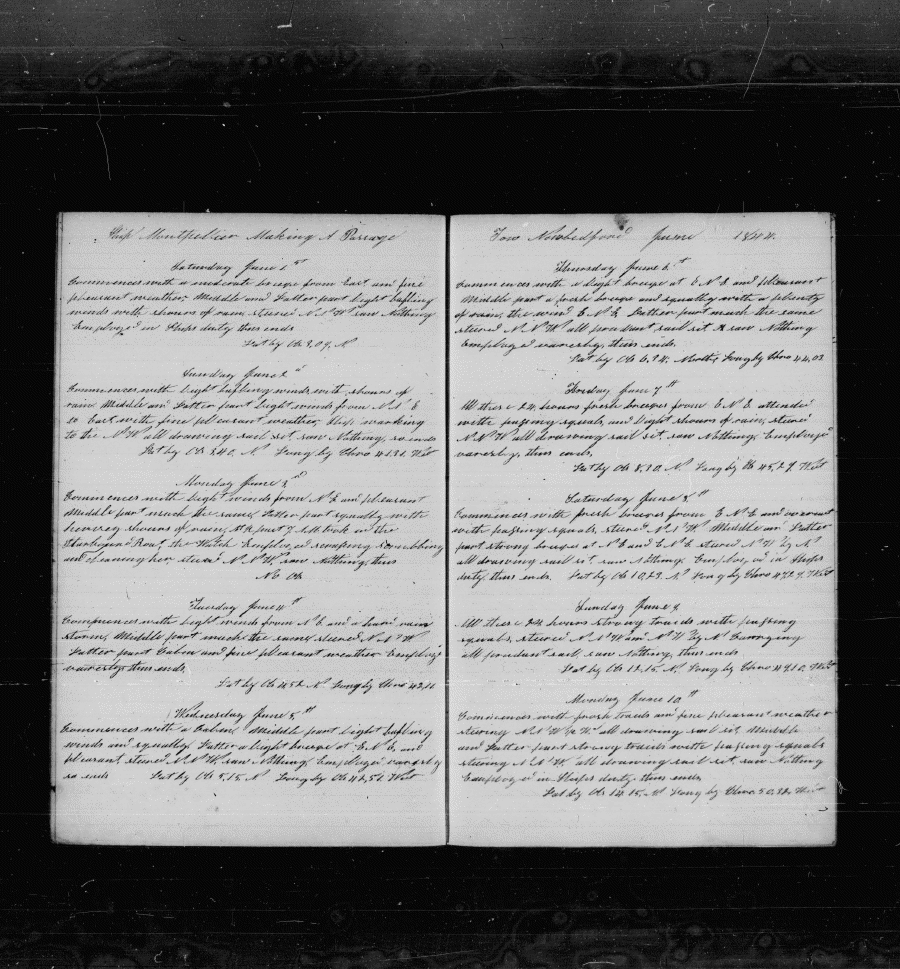 Ship Montpellier Making A Passage
Saturday June 1st
Commences with a moderate breeze from East and fine
pleasant weather, Middle and Latter part light baffling
winds with shours of rain, steered N.N.W saw Nothing
Employed in Ships duty thus ends
Lat by Ob 3,09, N
Sunday June 2nd
Commences with light bafling winds with shours of
rain Middle and Latter part light winds from N.N.E
to East with fine pleasant weather, Ship working
to the N.W all drawing sail set, saw Nothing, so ends
Lat by Ob 3,40, N Long by Chro 41,31, West
Monday June 3rd
Commences with light winds from N.E and pleasant
Middle part much the same, Latter part squally with
heavy shours of rain, At part 7 A.M took in the
Starboard Boat, the Watch Employed scraping scrubbing
and cleaning her, steerd N.N.W, saw Nothing, thus
No Ob
Tuesday June 4th
Commences with light winds from N.E and a hard rain
storm, Middle part much the same, steered N.N.W
Latter part Calm and fine pleasant weather Employd
variously, thus ends,
Lat by Ob 4,52, N Long by Chro 42,16
Wednesday June 5th
Commences with a Calm, Middle part light bafling
winds and squally, Latter a light breeze at E.N.E, and
pleasant, steered N.N.W, saw Nothing, Employed variously
so ends Lat by Ob 5,15, N Long by Ob 42,51, West
Tow Newbedford June 1844.
Thursday June 6th
Commences with a light breeze at E.N.E and pleasant
Middle part a fresh breeze and squally with a plenty
of rain, the wind E.N.E, Latter part much the same
steered N.N.W all prudant sail set & saw Nothing
Employed variously, thus ends,
Lat by Ob 6,34, North, Long by Chro 44,03
Friday June 7th
All these 24 hours fresh breezes from E.N.E attended
with passing squals, and light shours of rain, steerd
N.N.W all drawing sail set, saw Nothing, Employed
variously, thus ends,
Lat by Ob 8,30, N Long by Ob 45,29, West
Saturday June 8th
Commences with fresh breezes from E.N.E and overcast
with passing squals, steered N.N.W, Middle and Latter
part strong breeze at N.E and E.N.E, steered N.W by N,
all drawing sail set, saw Nothing, Employed in Ships
duty, thus ends, Lat by Ob 10,29, N, Long by Chro 47,29, West
Sunday June 9
All these 24 hours strong traids with passing
squals, steered N.N.W and N.W by N, Carrying
all prudant sail, saw Nothing, thus ends
Lat by Ob 12,15, N, Long by Chro 49,10, West
Monday June 10th
Commences with fresh traids and fine pleasant weather
steering N.N.W all drawing sail set, Middle
and Latter part strong traids with passing squals
steering N.N.W, all drawing sail set, saw Nothing
Employed in Ships duty, thus ends,
Lat by Ob 14,15, N Long by Chro 50,32, West